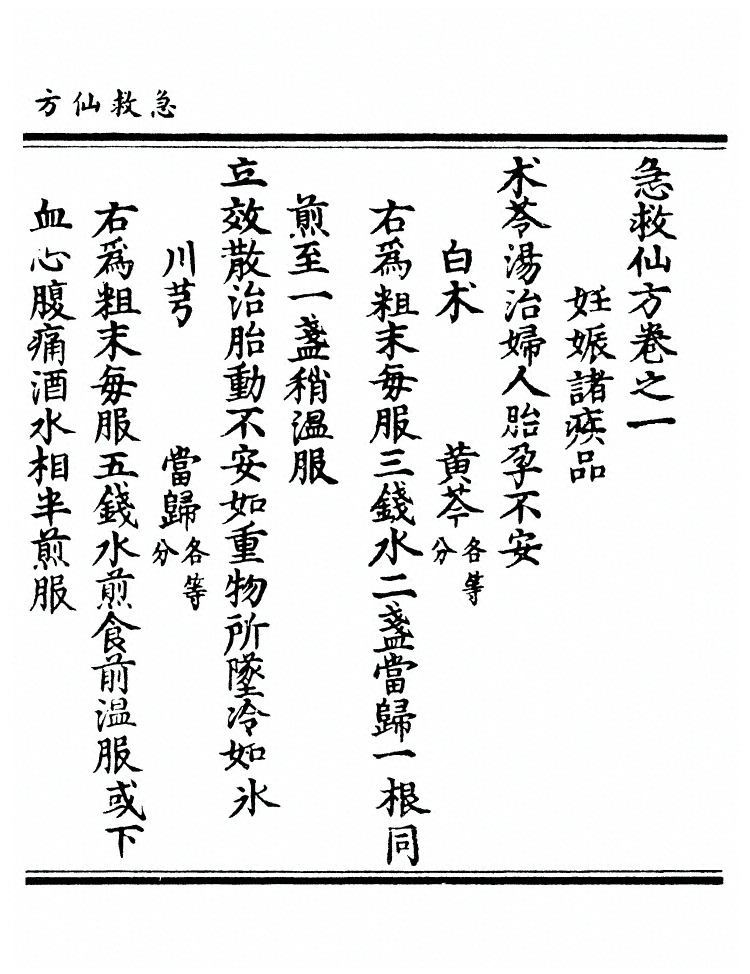 急救仙方
急救仙方卷之一
妊娠諸疾品
术苓湯治婦人胎孕不安
白术 黄芩各等分
右為粗末每服三錢水二盞當歸一根同
煎至一盞稍温服
立效散治胎動不安如重物所墜冷如氷
川芎 當歸各等分
右為粗末每服五錢水煎食前温服或下
血心腹痛酒水相半煎服